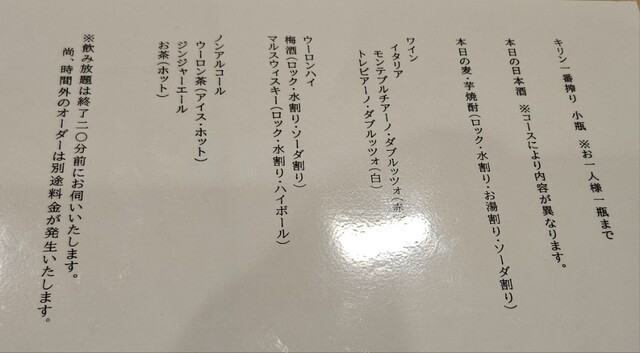 キリン一番搾り 小瓶 ※お一人様一瓶まで
本日の日本酒 ※コースにより内容が異なります。
本日の麦・芋焼酎(ロック・水割り・お湯割り・ソーダ割り)
ワイン
イタリア
モンテプルチアーノ・ダブルッツォ(赤)
トレビアーノ・ダブルッツォ(白)
ウーロンハイ
梅酒(ロック・水割り・ソーダ割り)
マルスウィスキー(ロック・水割り・ハイボール)
ノンアルコール
ウーロン茶(アイス・ホット)
ジンジャーエール
お茶(ホット)
※飲み放題は終了二〇分前にお伺いいたします。
尚、時間外のオーダーは別途料金が発生いたします。